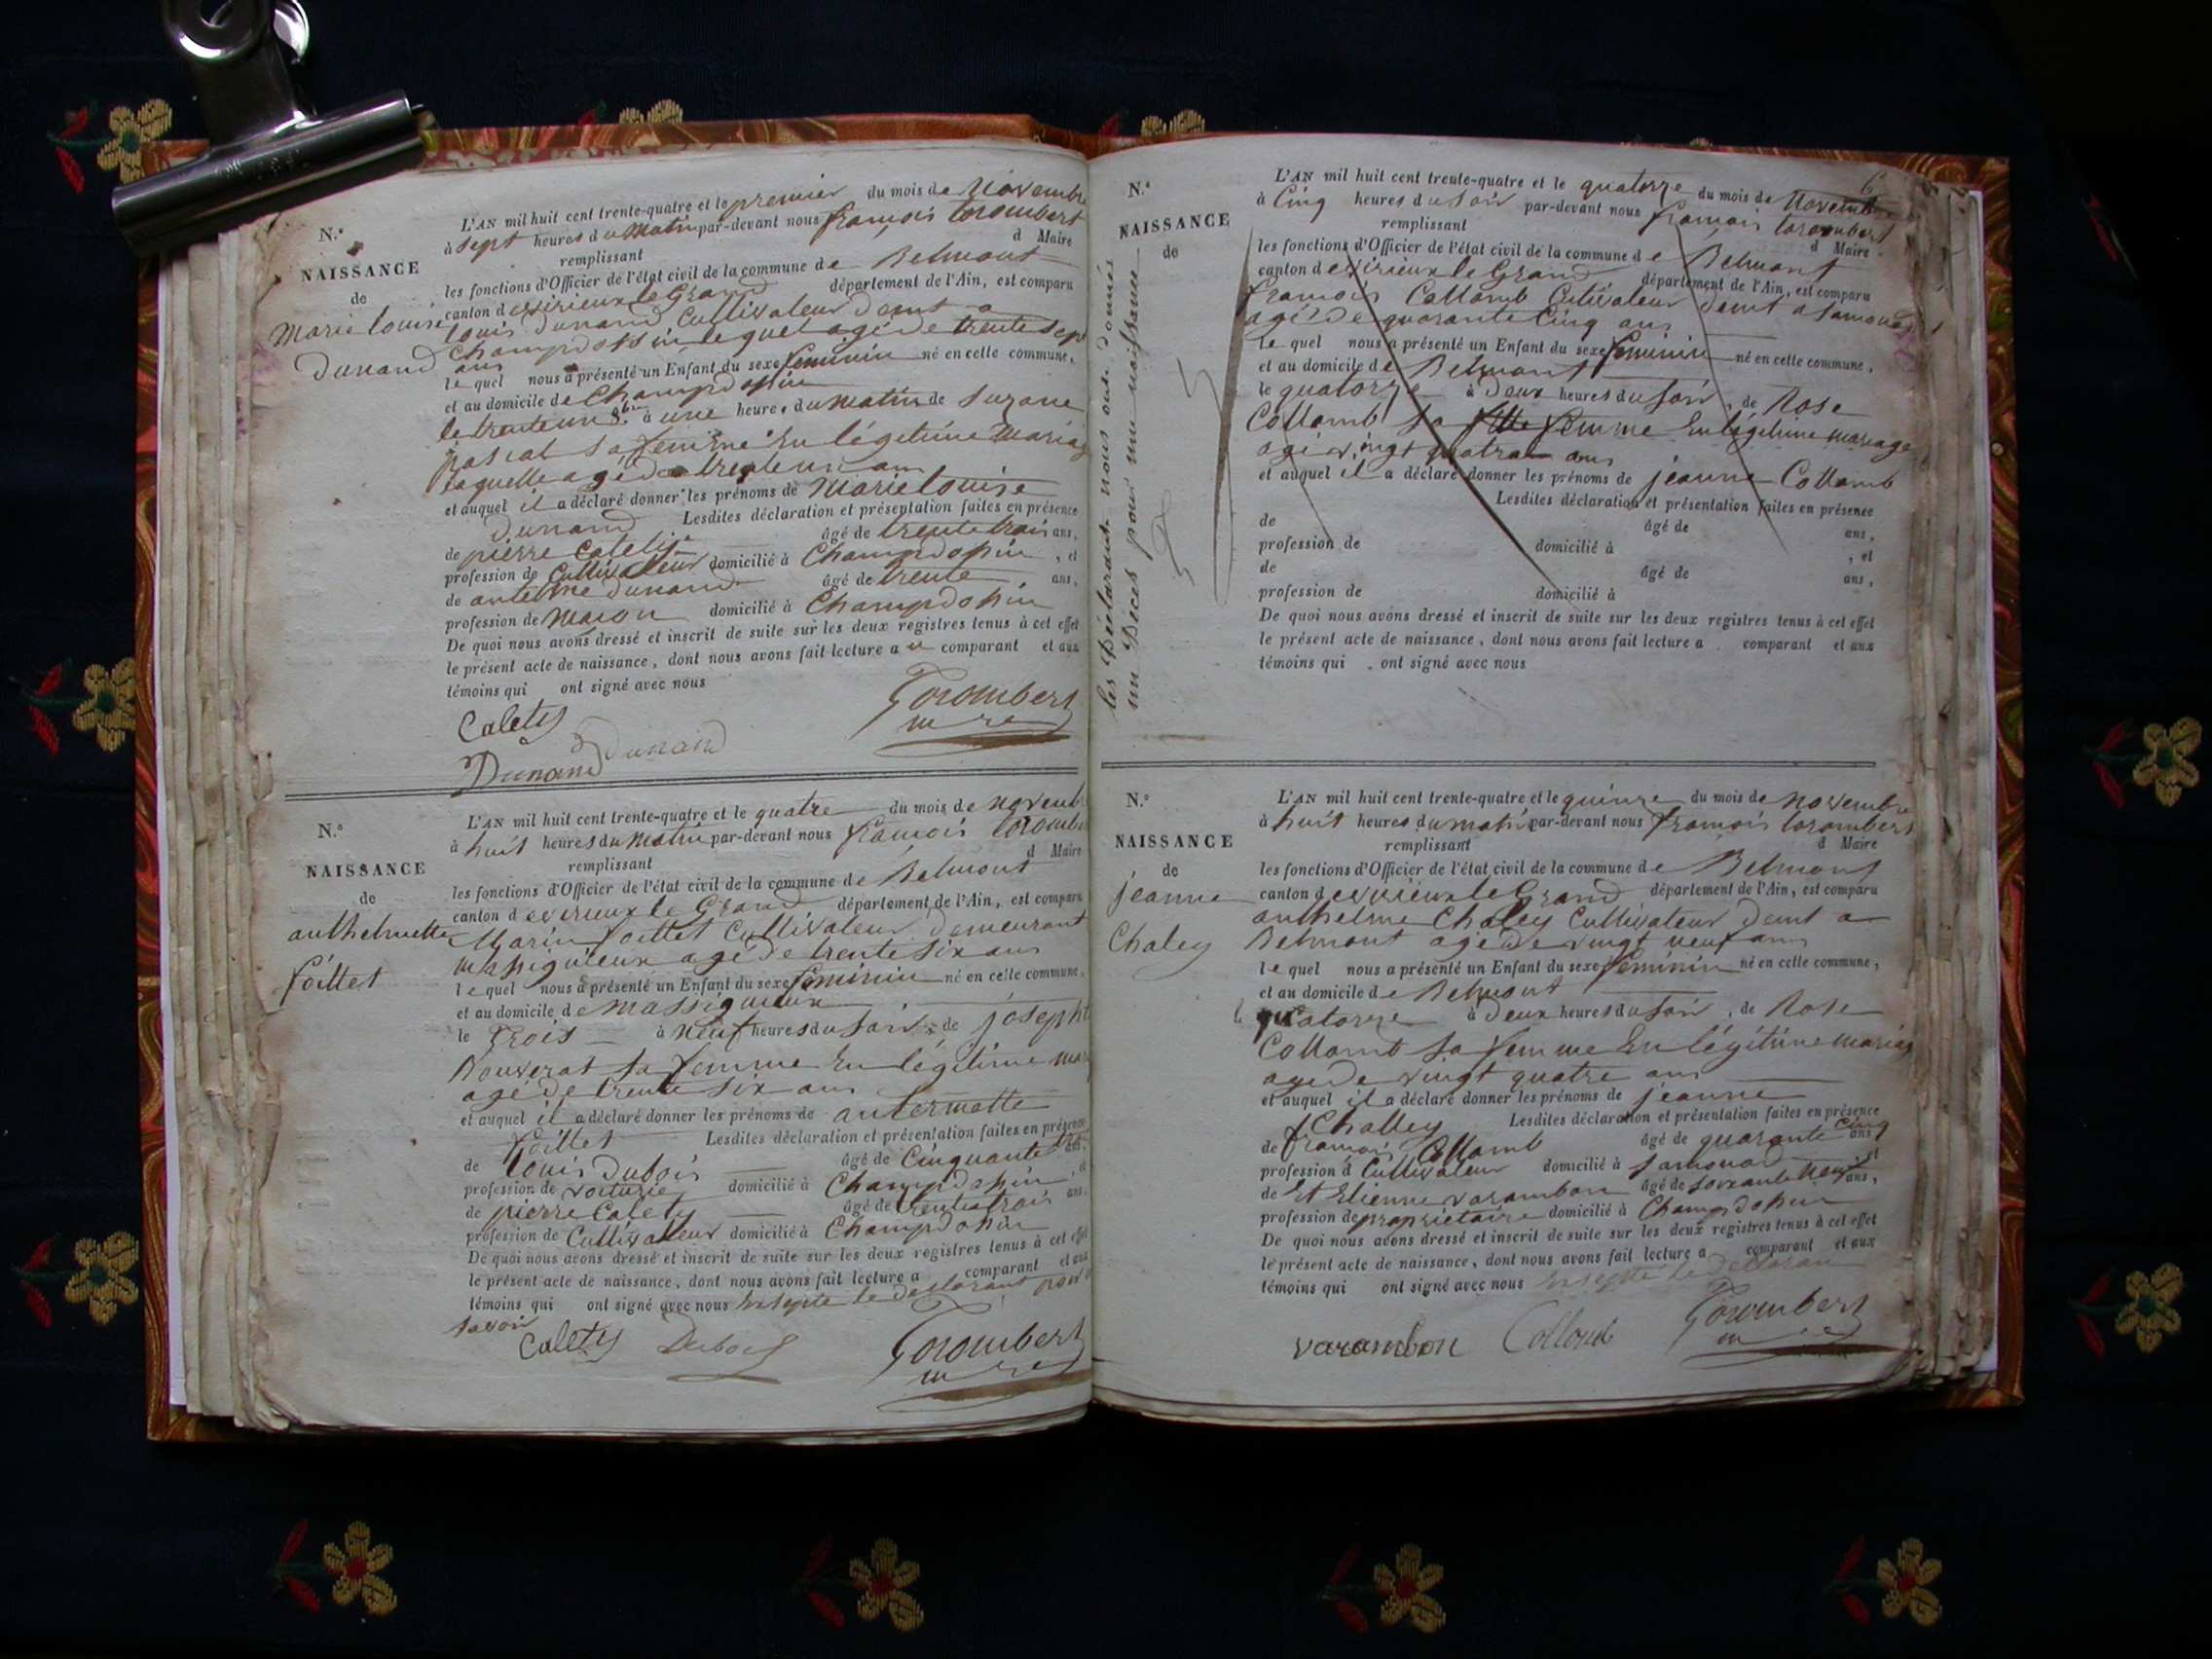 N.°
NAISSANCE
de
Marie louise
Dunand
L'AN mil huit cent trente-quatre et le premier du mois de Novembre
à sept heures du Matin par-devant nous françois torombert
remplissant d Maire
les fonctions d'Officier de l'état civil de la commune de Belmont
canton de virieux le Grand département de l'Ain, est comparu
louis Dunand Cultivateur demt a
Champdossin lequel agé de trente sept
ans
lequel nous a présenté un Enfant du sexe feminin né en cette commune,
et au domicile de Champdossin
le trente un 8bre à une heure, du matin de Suzane
pascal sa femme En légitime Mariage
laquelle agé de trente un ans
et auquel il a déclaré donner les prénoms de Marie louise
Dunand Lesdites déclaration et présentation faites en présence
de pierre Calety âgé de trente trois ans,
profession de Cultivateur domicilié à Champdossin , et
de antelme Dunand âgé de trente ans,
profession de Maçon domicilié à Champdossin
De quoi nous avons dressé et inscrit de suite sur les deux registres tenus à cet effet
le présent acte de naissance, dont nous avons fait lecture au comparant et aux
témoins qui ont signé avec nous
Calety Torombert
Dunand Dunand
N.°
NAISSANCE
de
anthelmette
foillet
L'AN mil huit cent trente-quatre et le quatre du mois de novemb
à huit heures du Matin par-devant nous françois torombe
remplissant d Maire
les fonctions d'Officier de l'état civil de la commune de Belmont
canton de virieux le Grand département de l'Ain, est comparu
Marin foillet Cultivateur demeurant
Massignieux agé de trente six ans
lequel nous a présenté un Enfant du sexe feminin né en cette commune,
et au domicile de massignieux
le Trois à neuf heures du soir, de joseph
Rouverat sa femme En légitime ma
agé de trente six ans
et auquel il a déclaré donner les prénoms de antermette
foillet Lesdites déclaration et présentation faites en présence
de louis Dubois âgé de Cinquante ans,
profession de voiturie domicilié à Champdossin , et
de pierre Calety âgé de trente trois ans,
profession de Cultivateur domicilié à Champdossin
De quoi nous avons dressé et inscrit de suite sur les deux registres tenus à cet effet
le présent acte de naissance, dont nous avons fait lecture a comparant et aux
témoins qui ont signé avec nous Exsepté le declarant pour
savoir
Calety Dubois Torombert
6
N.°
NAISSANCE
de
les Déclarant nous ont donnés
un Déces pour une naissance
L'AN mil huit cent trente-quatre et le quatorze du mois de Novembre
à Cinq heures du soir par-devant nous françois torombert
remplissant d Maire
les fonctions d'Officier de l'état civil de la commune de Belmont
canton de virieux le Grand département de l'Ain, est comparu
françois Collomb Cultivateur demt a samouad
agé de quarante Cinq ans
lequel nous a présenté un Enfant du sexe feminin né en cette commune,
et au domicile de Belmont
le quatorze à Deux heures du soir, de Rose
Collomb sa fille femme En légitime mariage
agé vingt quatre ans
et auquel il a déclaré donner les prénoms de jeanne Collomb
Lesdites déclaration et présentation faites en présence
de âgé de ans,
profession de domicilié à , et
de âgé de ans,
profession de domicilié à
De quoi nous avons dressé et inscrit de suite sur les deux registres tenus à cet effet
le présent acte de naissance, dont nous avons fait lecture a comparant et aux
témoins qui ont signé avec nous
N.°
NAISSANCE
de
jeanne
Chaley
L'AN mil huit cent trente-quatre et le quinze du mois de novembre
à huit heures du matin par-devant nous françois torombert
remplissant d Maire
les fonctions d'Officier de l'état civil de la commune de Belmont
canton de virieux le Grand département de l'Ain, est comparu
anthelme Chaley Cultivateur demt a
Belmont agé de vingt neuf ans
lequel nous a présenté un Enfant du sexe feminin né en cette commune,
et au domicile de Belmont
le quatorze à Deux heures du soir, de Rose
Collomb sa femme En légitime mariag
agé de vingt quatre ans
et auquel il a déclaré donner les prénoms de jeanne
Challey Lesdites déclaration et présentation faites en présence
de françois Collomb âgé de quarante cinq ans
profession d Cultivateur domicilié à samouad , et
de Et Etienne varambon âgé de soixante neuf ans,
profession de propriétaire domicilié à Champdossin
De quoi nous avons dressé et inscrit de suite sur les deux registres tenus à cet effet
le présent acte de naissance, dont nous avons fait lecture a comparant et aux
témoins qui ont signé avec nous Exsepté le declaran
varambon Collomb Torombert